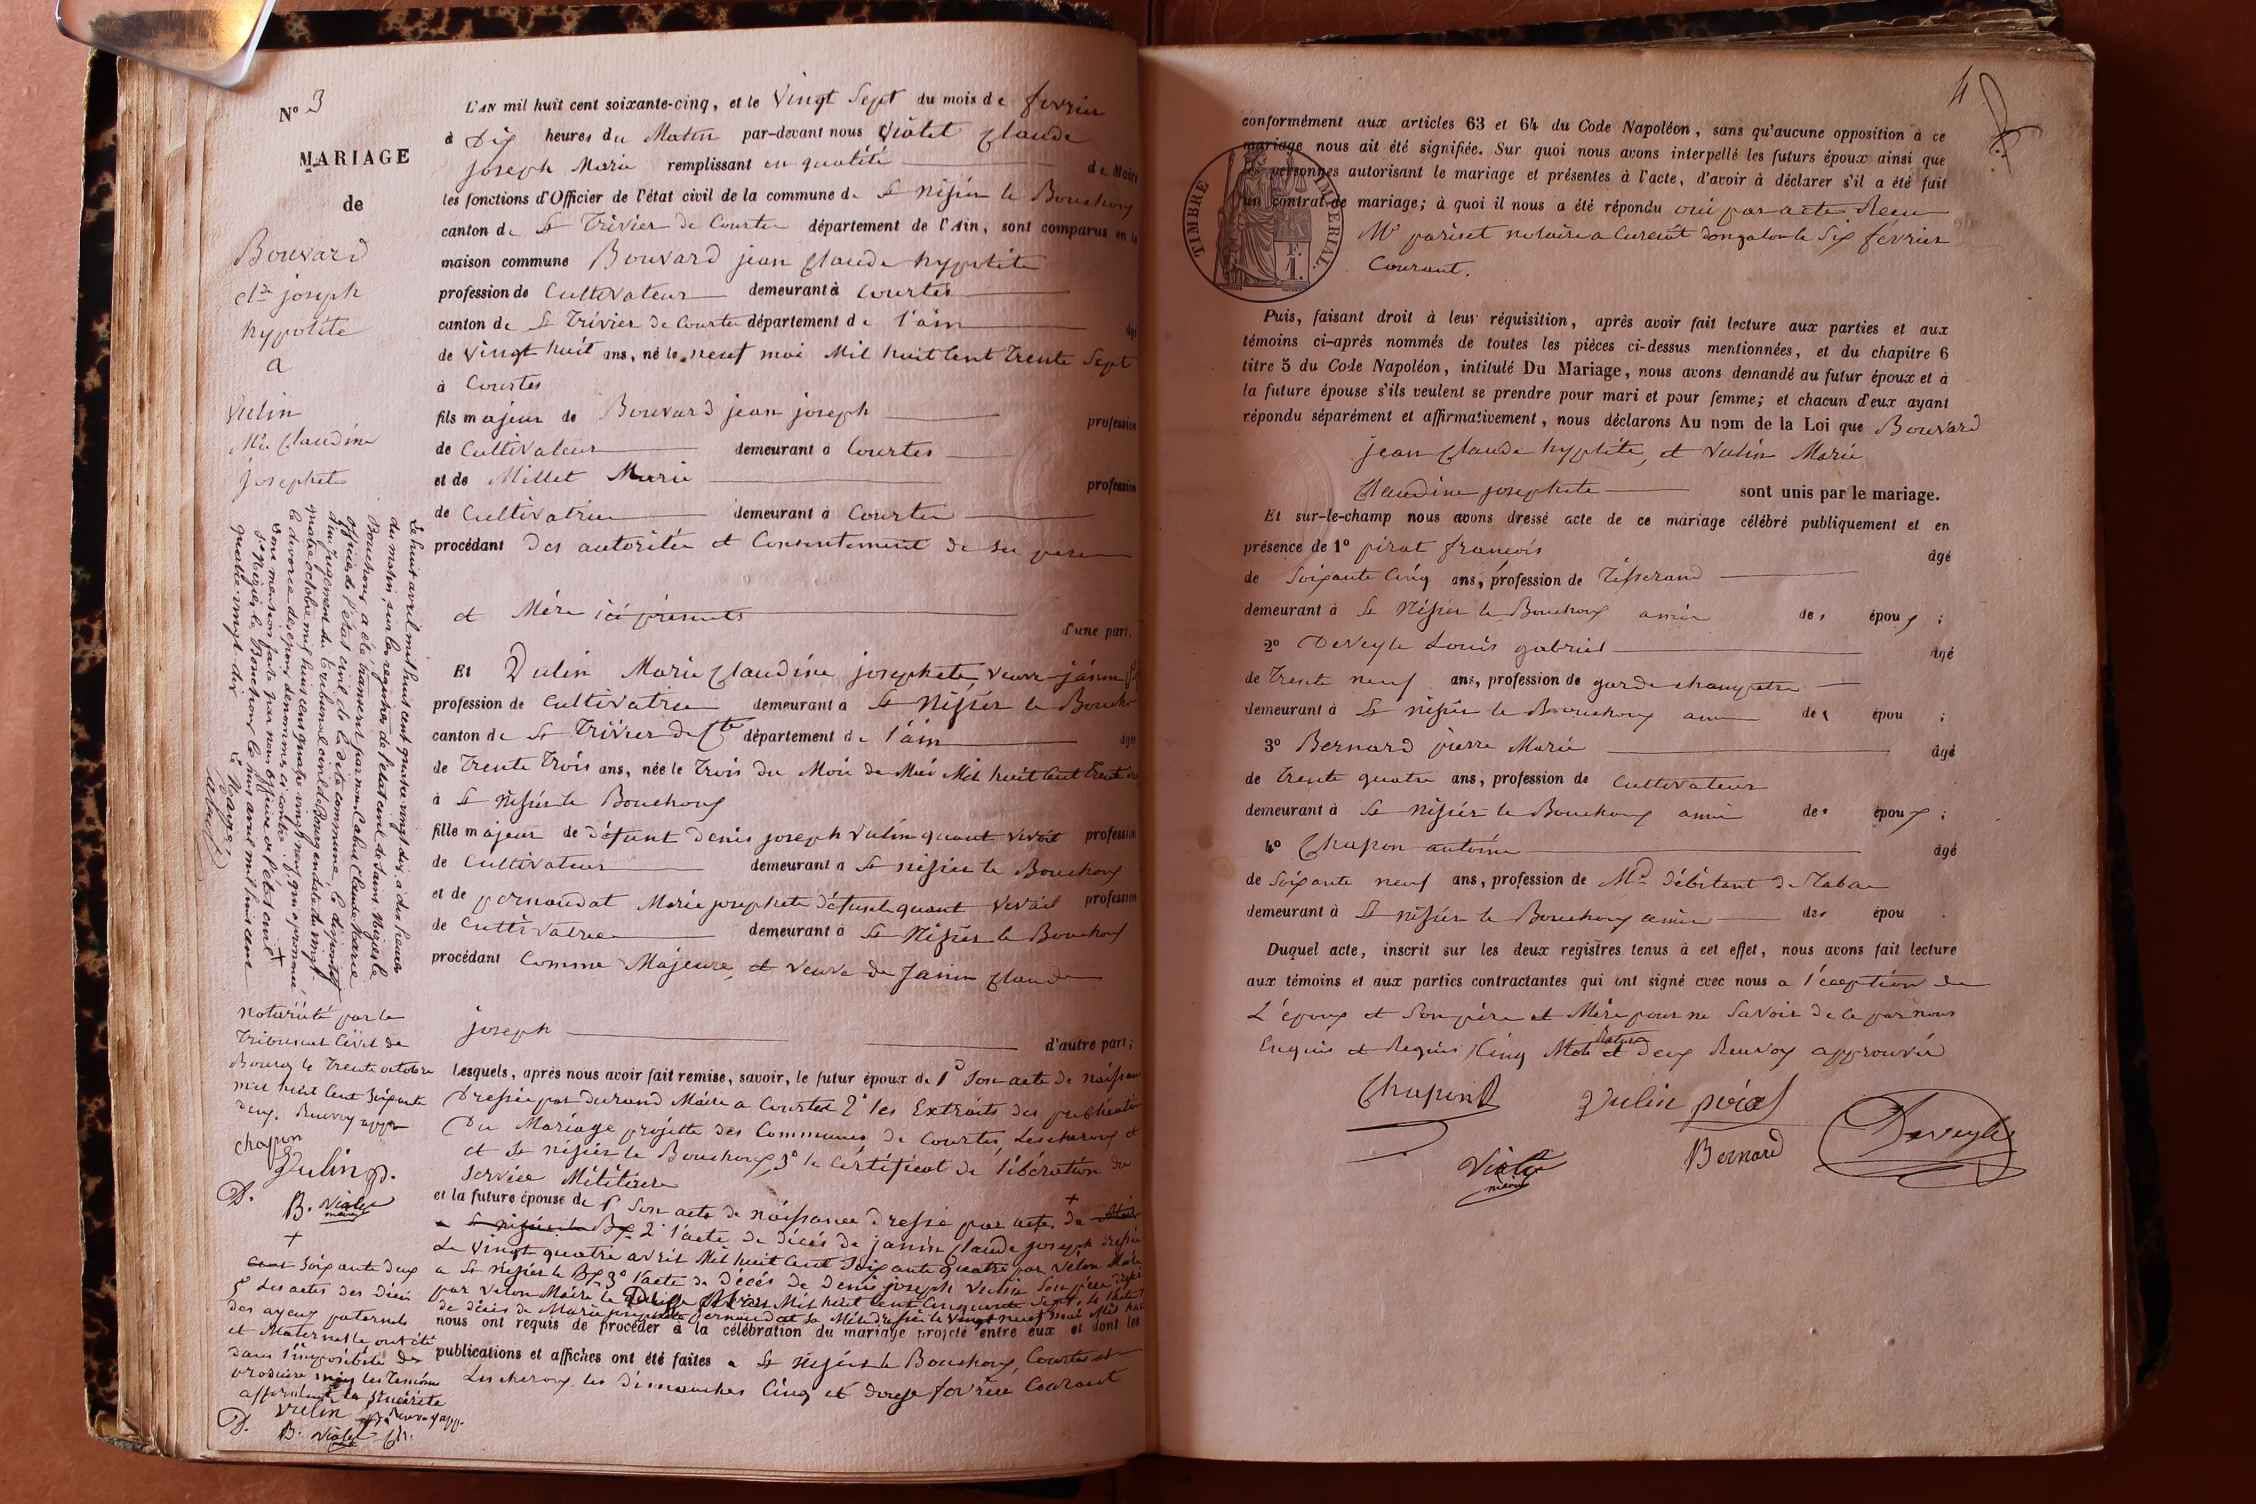 N° 3
MARIAGE
de
Bouvard
Cl.de joseph
hypolite
a
Vulin
M.ie Claudine
josephete
L'AN mil huit cent soixante-cinq, et le Vingt Sept du mois de fevrier
à Dix heures du Matin par-devant nous Violet Claude
joseph Marie remplissant en qualité de Maire
les fonctions d'Officier de l'état civil de la commune de St Nisier le Bouchoux
canton de St Trivier de Courtes département de l'Ain, sont comparus en la
maison commune Bouvard jean Claude hypolite
profession de Cultivateur demeurant à Courtes
canton de St Trivier de Courtes département de l'ain âgé
de Vingt huit ans, né le neuf mai Mil huit Cent Trente Sept
à Courtes
fils majeur de Bouvard jean joseph profession
de Cultivateur demeurant à Courtes
et de Millet Marie profession
de Cultivatrice demeurant à Courtes
procédant Des autoritée et Consentement de Ses pere
et Mère ici présents d'une part,
Et Vulin Marie Claudine josephete, veuve janin
profession de Cultivatrice demeurant à St Nisier le Boucho
canton de St Trivier de Ctes département de l'ain âgée
de Trente Trois ans, née le Trois du Mois de Mai Mil huit Cent Trente
à St Nisier le Bouchoux
fille majeur de défunt Denis joseph Vulin quant vivait profession
de Cultivateur demeurant à St Nisier le Bouchoux
et de pernaudat Marie josephete défunte quant vivait profession
de Cultivatrice demeurant à St Nisier le Bouchoux
procédant Comme Majeure, et veuve de Janin Claude
joseph d'autre part;
Lesquels, après nous avoir fait remise, savoir, le futur époux de 1° Son acte de naissance
Dressée par Durand Maire a Courtes 2° les Extraits des publication
Du Mariage projetté des Communes de Courtes, Lescheroux et
et St Nisier le Bouchoux, 3° le Certificat de libération du
Service Militaire
et la future épouse de 1° Son acte de naissance dressé par acte de
2° l'acte de décès de janin Claude joseph dressé
Le vingt quatre avril Mil huit Cent Soixante quatre par Velon Maire
a St Nisier le Bx 3° l'acte de Décès de Denis joseph Vulin Son père dressé
par Velon Maire le Mil huit Cent Cinquante Sept, 4° l'acte
de décès de Marie josephete pernaudat Sa Mère dressé le Vingt neuf mai Mil huit
nous ont requis de procéder à la célébration du mariage projeté entre eux et dont les
publications et affiches ont été faites a St Nisier le Bouchoux, Courtes et
Lescheroux les dimanches Cinq et douze fevrier Courant
Le huit avril mil huit cent quatre vingt dix, à dix heures
du matin, sur les registres de l'état civil de Saint Nizier le
Bouchoux a été transcrit par nous Cabut Claude Marie
officier de l'état civil de la dite commune, le dispositif
d'un jugement du tribunal civil de Bourg en date du vingt
quatre octobre mil huit cent quatre vingt neuf, qui a prononcé
le divorce des époux dénommés ci contre.
Dont mention faite par nous officier de l'état civil
St Nizier le Bouchoux le huit avril mil huit cent
quatre vingt dix
Le Maire
Cabut
notoriété par le
Tribunal Civil de
Bourg le Trente octobre
Mil huit Cent Soixante
Deux. Renvoy app
chapon
Vulin p.
D. B. Violet
maire
+
Soixante deux
5° Les actes des décès
des ayeux paternels
et Maternelle ont été
dans l'imposibilité de
produire mais les Temoins
affirment la Sincérité
Vulin Renvoy app.
D. B. Violet Ch.
4
conformément aux articles 63 et 64 du Code Napoléon, sans qu'aucune opposition à ce
mariage nous ait été signifiée. Sur quoi nous avons interpellé les futurs époux ainsi que
personnes autorisant le mariage et présentes à l'acte, d'avoir à déclarer s'il a été fait
un contrat de mariage; à quoi il nous a été répondu oui par acte Recu
Me pariset notaire a Curciat dongalon le Six fevrier
Courant.
TIMBRE IMPERIAL.
F.
1.
Puis, faisant droit à leur réquisition, après avoir fait lecture aux parties et aux
témoins ci-après nommés de toutes les pièces ci-dessus mentionnées, et du chapitre 6
titre 5 du Code Napoléon, intitulé Du Mariage, nous avons demandé au futur époux et à
la future épouse s'ils veulent se prendre pour mari et pour femme; et chacun d'eux ayant
répondu séparément et affirmativement, nous déclarons Au nom de la Loi que Bouvard
jean Claude hyplite, et Vulin Marie
Claudine josephete sont unis par le mariage.
Et sur-le-champ nous avons dressé acte de ce mariage célébré publiquement et en
présence de 1° pirat francois âgé
de Soixante Cinq ans, profession de Tisserand
demeurant à St Nisier le Bouchoux amis des époux;
2° Deveyle Louis gabriel âgé
de Trente neuf ans, profession de garde champetre
demeurant à St nisier le Bouchoux ami des épou ;
3° Bernard pierre Marie âgé
de Trente quatre ans, profession de Cultivateur
demeurant à St Nisier le Bouchoux ami des époux;
4° Chapon antoine âgé
de Soixante neuf ans, profession de Md débitant de Tabac
demeurant à St nisier le Bouchoux amis des épou .
Duquel acte, inscrit sur les deux registres tenus à cet effet, nous avons fait lecture
aux témoins et aux parties contractantes qui ont signé avec nous a l'éception de
L'époux et Son père et Mère pour ne Savoir de ce par nous
Enquis et Requis Cinq Mots et deux Renvoy approuvée
Chapon Vulin pirat Deveyle
Violet
maire Bernard